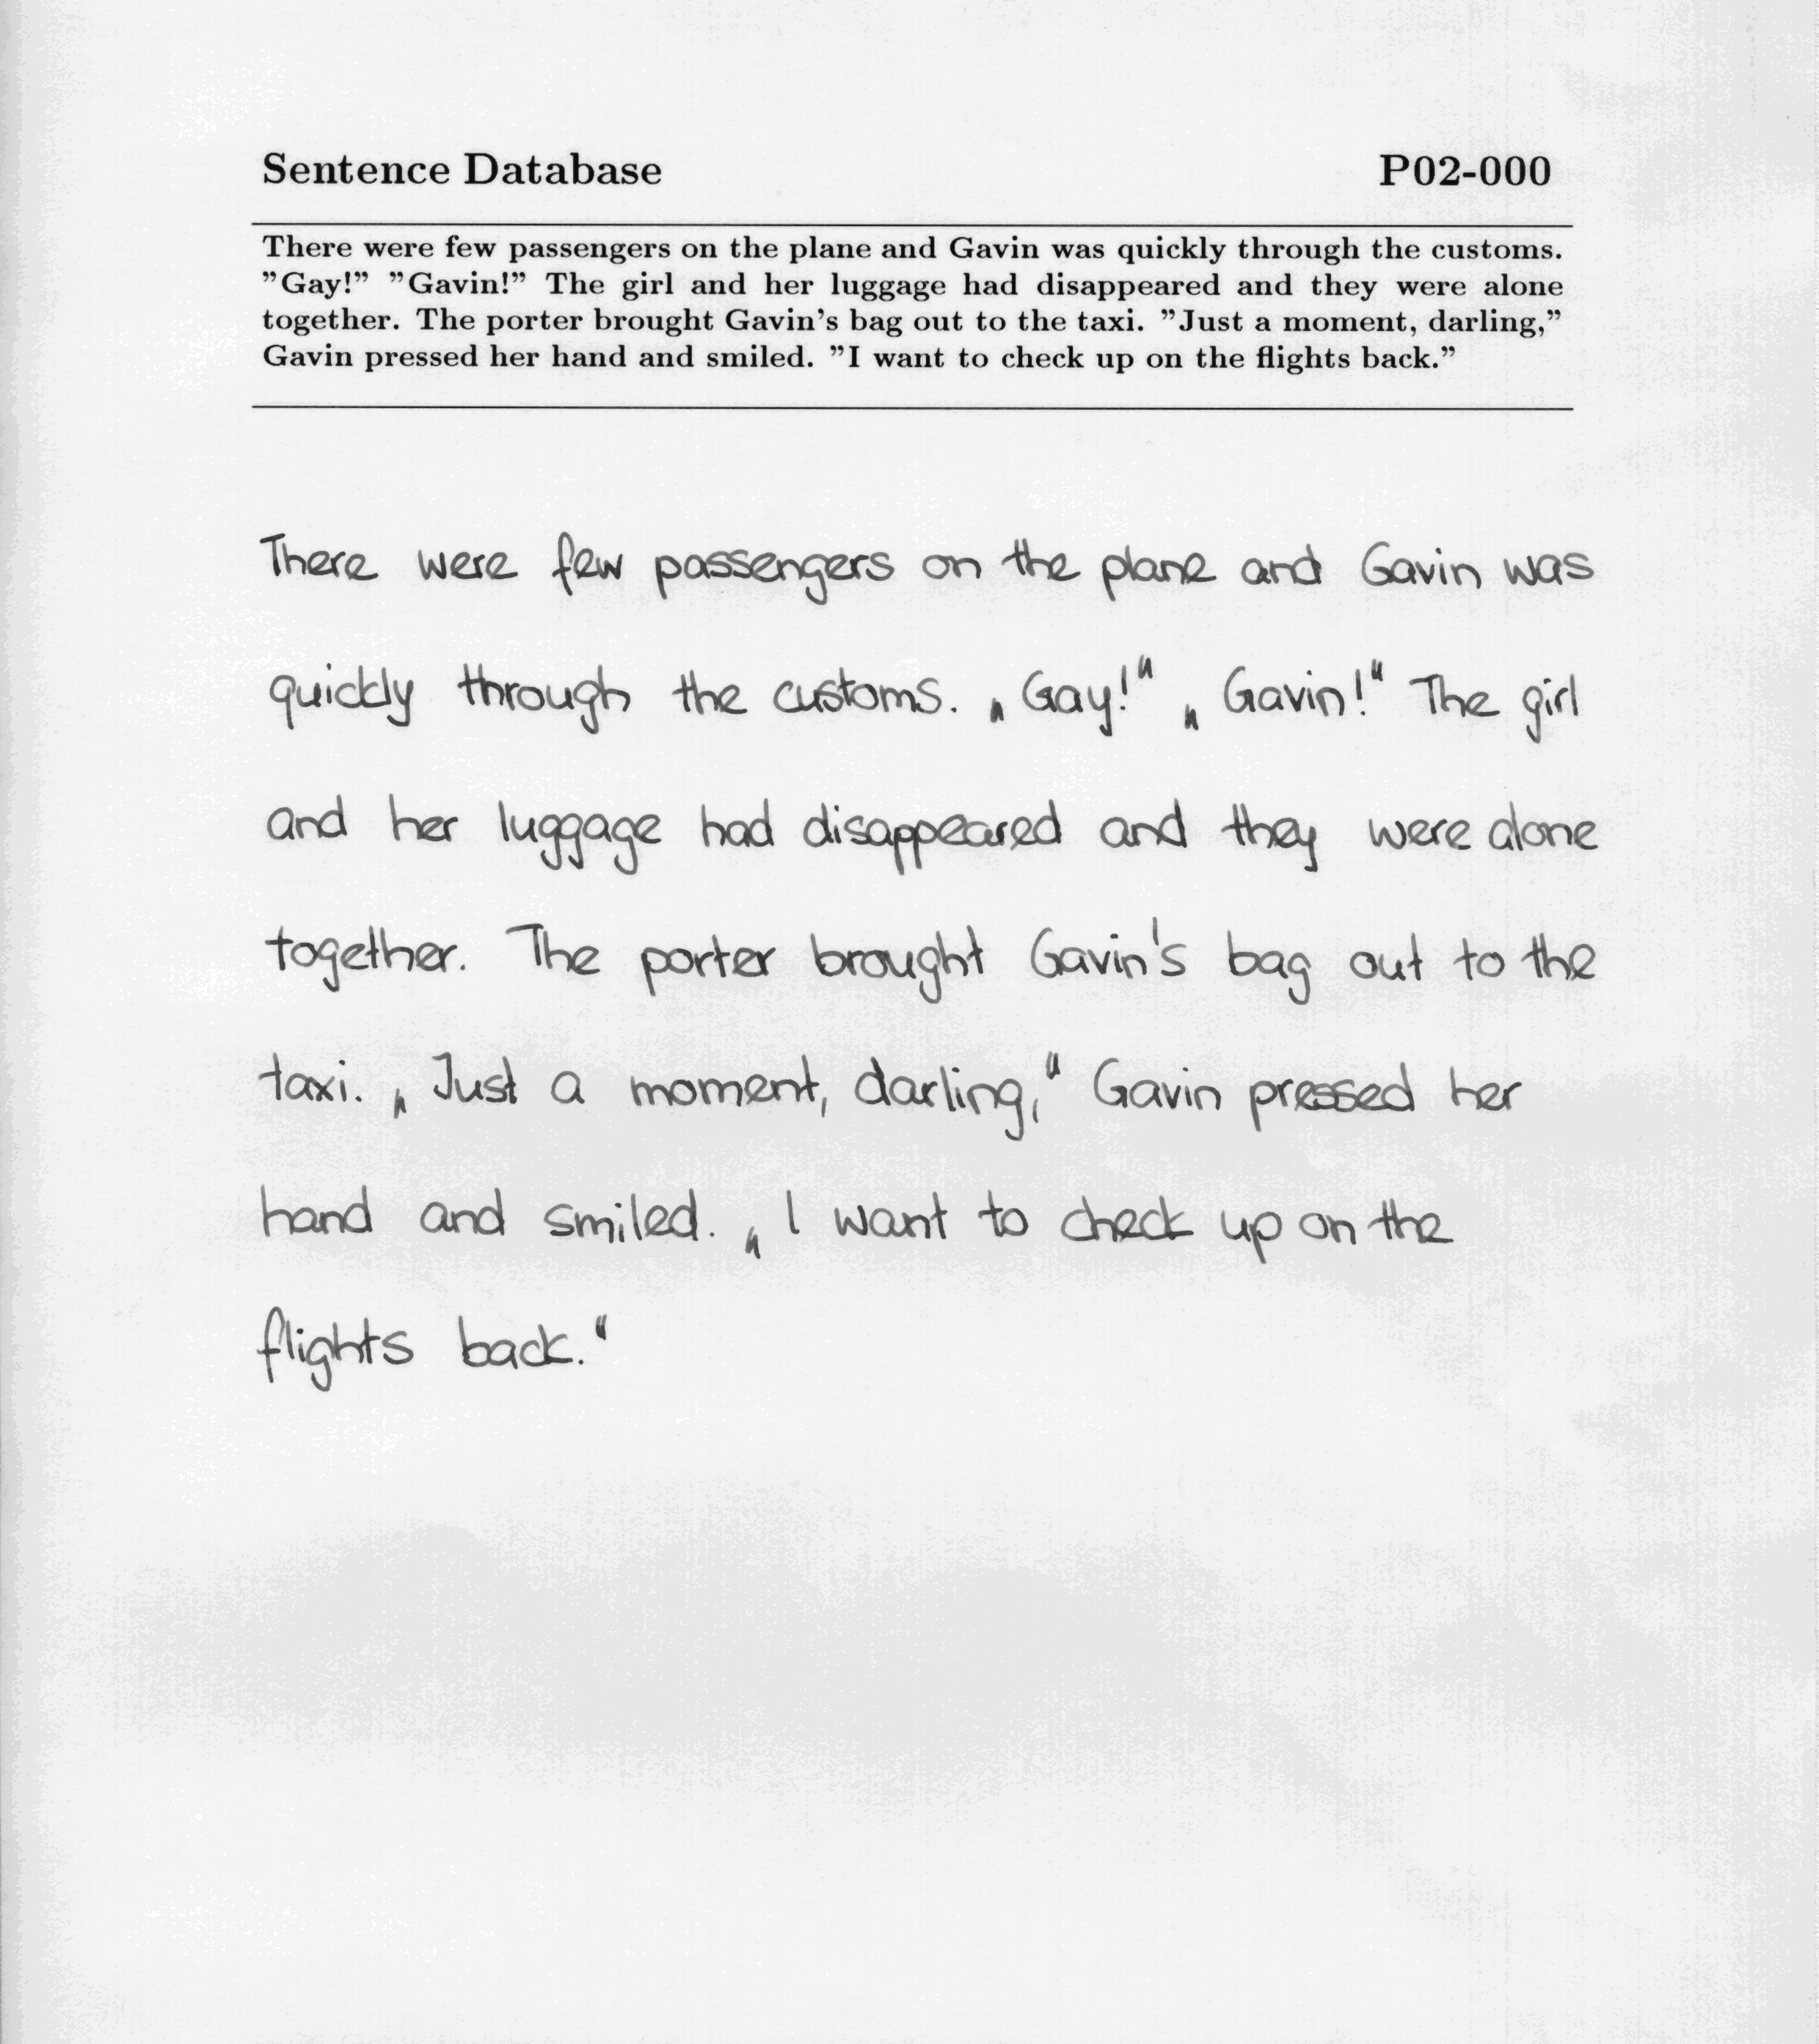 Sentence Database P02-000
There were few passengers on the plane and Gavin was quickly through the customs.
”Gay!” ”Gavin!” The girl and her luggage had disappeared and they were alone
together. The porter brought Gavin’s bag out to the taxi. ”Just a moment, darling,”
Gavin pressed her hand and smiled. ”I want to check up on the flights back.”
There were few passengers on the plane and Gavin was
quickly through the customs. „Gay!“ „Gavin!“ The girl
and her luggage had disappeared and they were alone
together. The porter brought Gavin's bag out to the
taxi. „Just a moment, darling,“ Gavin pressed her
hand and smiled. „I want to check up on the
flights back.“